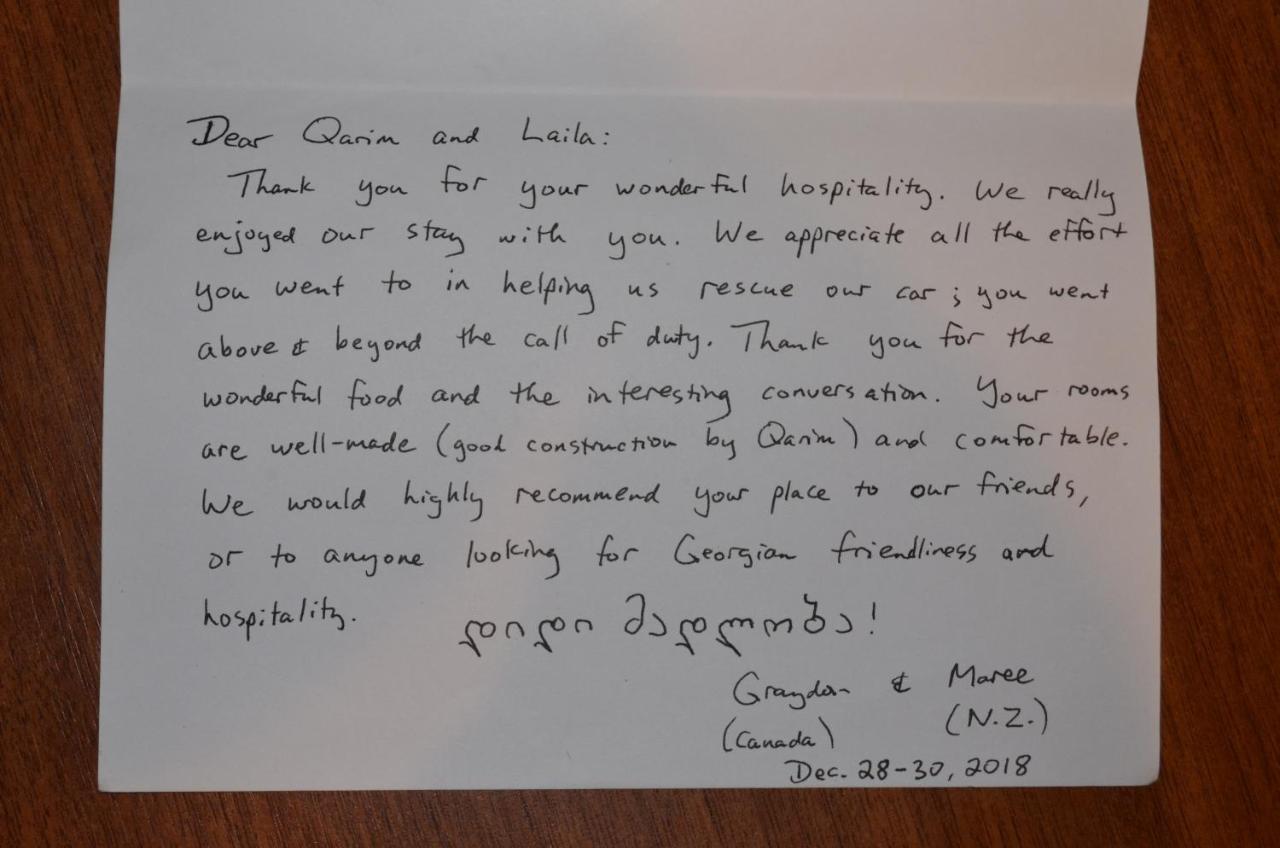 Dear Qarim and Laila:
Thank you for your wonderful hospitality. We really
enjoyed our stay with you. We appreciate all the effort
you went to in helping us rescue our car; you went
above & beyond the call of duty. Thank you for the
wonderful food and the interesting conversation. Your rooms
are well-made (good construction by Qarim) and comfortable.
We would highly recommend your place to our friends,
or to anyone looking for Georgian friendliness and
hospitality. დიდი მადლობა!
Graydon & Maree
(Canada) (N.Z.)
Dec. 28-30, 2018